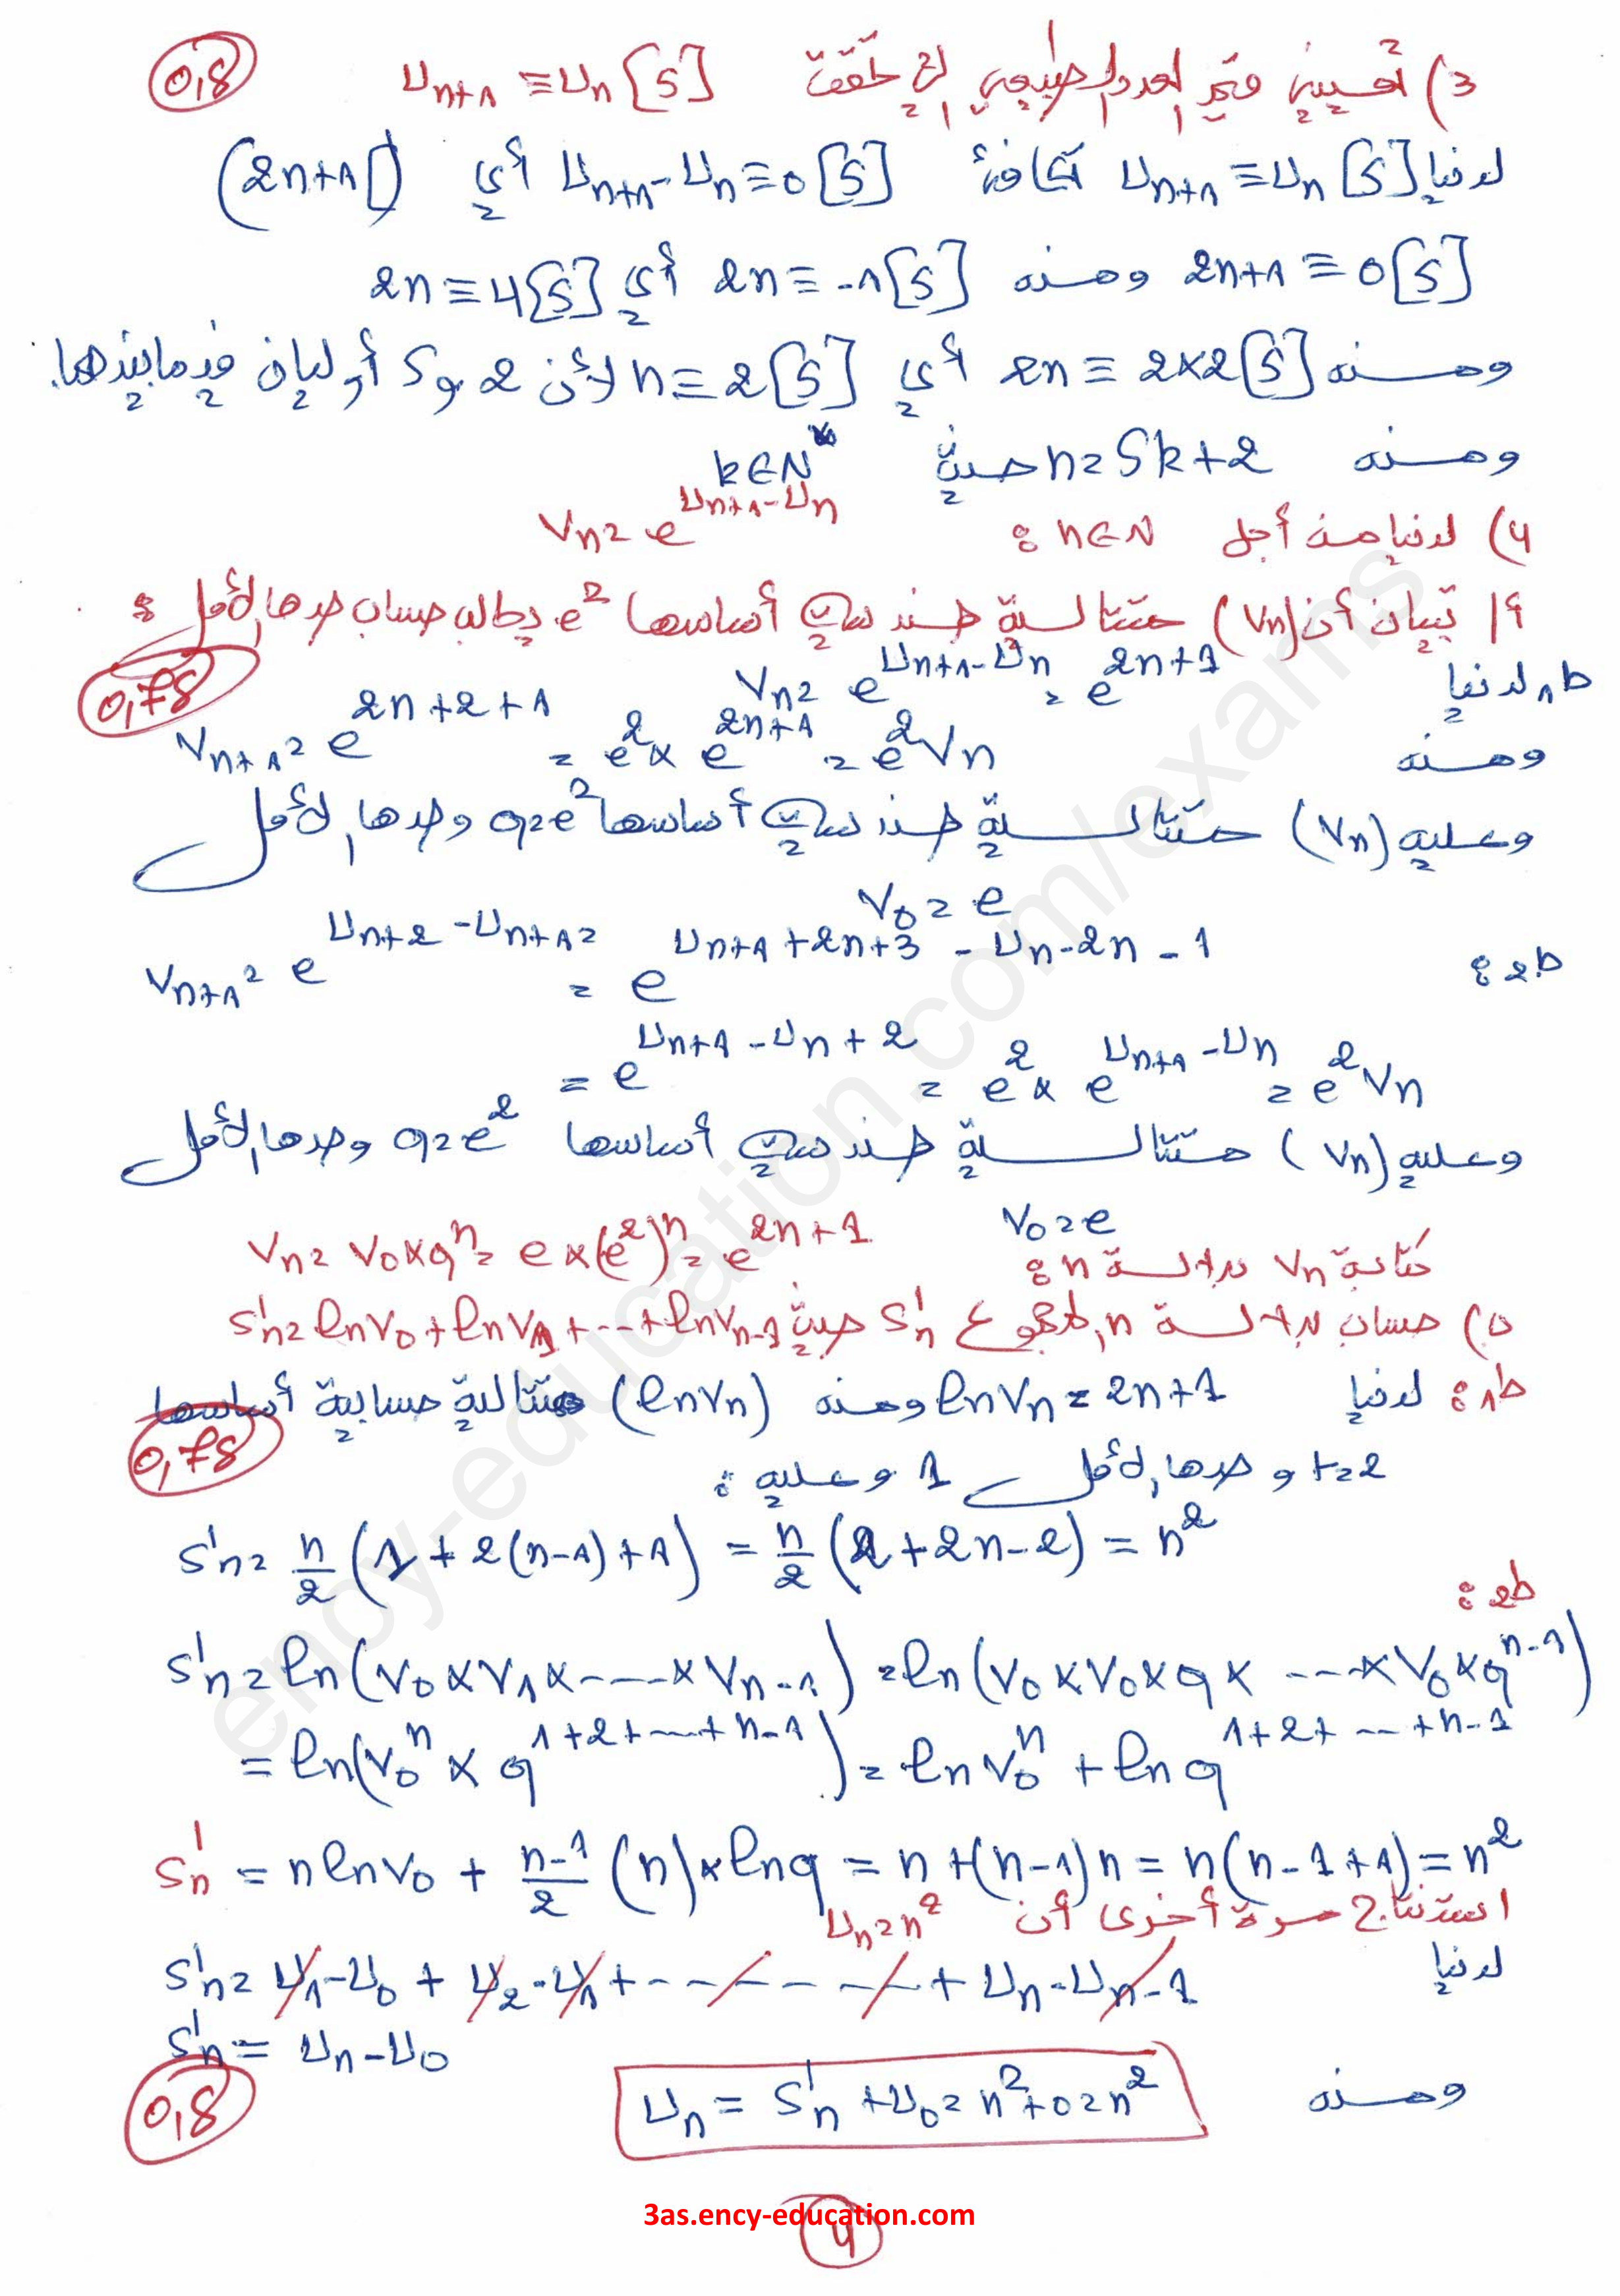 3) تعيين قيم العدد الطبيعي n التي تحقق U_{n+1} ≡ U_n [5] 0,5
لدينا U_{n+1} ≡ U_n [5] تكافئ U_{n+1} - U_n ≡ 0 [5] أي (2n+1)
2n+1 ≡ 0 [5] ومنه 2n ≡ -1 [5] أي 2n ≡ 4 [5]
ومنه 2n ≡ 2×2 [5] أي n ≡ 2 [5] لأن 2 و 5 أوليان فيما بينهما.
ومنه n = 5k+2 حيث k ∈ N
4) لدينا من أجل n ∈ N : V_n = e^{U_{n+1} - U_n}
أ/ تبيان أن (V_n) متتالية هندسية أساسها e² يطلب حساب حدها الأول :
0,75
ط1 لدينا V_n = e^{U_{n+1} - U_n} = e^{2n+1}
ومنه V_{n+1} = e^{2n+2+1} = e² × e^{2n+1} = e² V_n
وعليه (V_n) متتالية هندسية أساسها q = e² وحدها الأول
V_0 = e
ط2 : V_{n+1} = e^{U_{n+2} - U_{n+1}} = e^{U_{n+1} + 2n+3 - U_n - 2n - 1}
= e^{U_{n+1} - U_n + 2} = e² × e^{U_{n+1} - U_n} = e² V_n
وعليه (V_n) متتالية هندسية أساسها q = e² وحدها الأول
V_0 = e
كتابة V_n بدلالة n : V_n = V_0 × q^n = e × (e²)^n = e^{2n+1}
حساب بدلالة n المجموع S'_n حيث S'_n = ln V_0 + ln V_1 + ... + ln V_{n-1}
ط1 : لدينا ln V_n = 2n+1 ومنه (ln V_n) متتالية حسابية أساسها
0,75
r = 2 و حدها الأول 1 وعليه :
S'_n = n/2 (1 + 2(n-1) + 1) = n/2 (2 + 2n - 2) = n²
ط2 :
S'_n = ln(V_0 × V_1 × .... × V_{n-1}) = ln(V_0 × V_0 × q × ... × V_0 × q^{n-1})
= ln(V_0^n × q^{1+2+...+n-1}) = ln V_0^n + ln q^{1+2+...+n-1}
S'_n = n ln V_0 + (n-1)/2 (n) × ln q = n + (n-1)n = n(n-1+1) = n²
استنتاج مرة أخرى أن U_n = n²
لدينا S'_n = U_1 - U_0 + U_2 - U_1 + ------ + U_n - U_{n-1}
S'_n = U_n - U_0
0,5
ومنه U_n = S'_n + U_0 = n² + 0 = n²
3as.ency-education.com
4
ency-education.com/exams